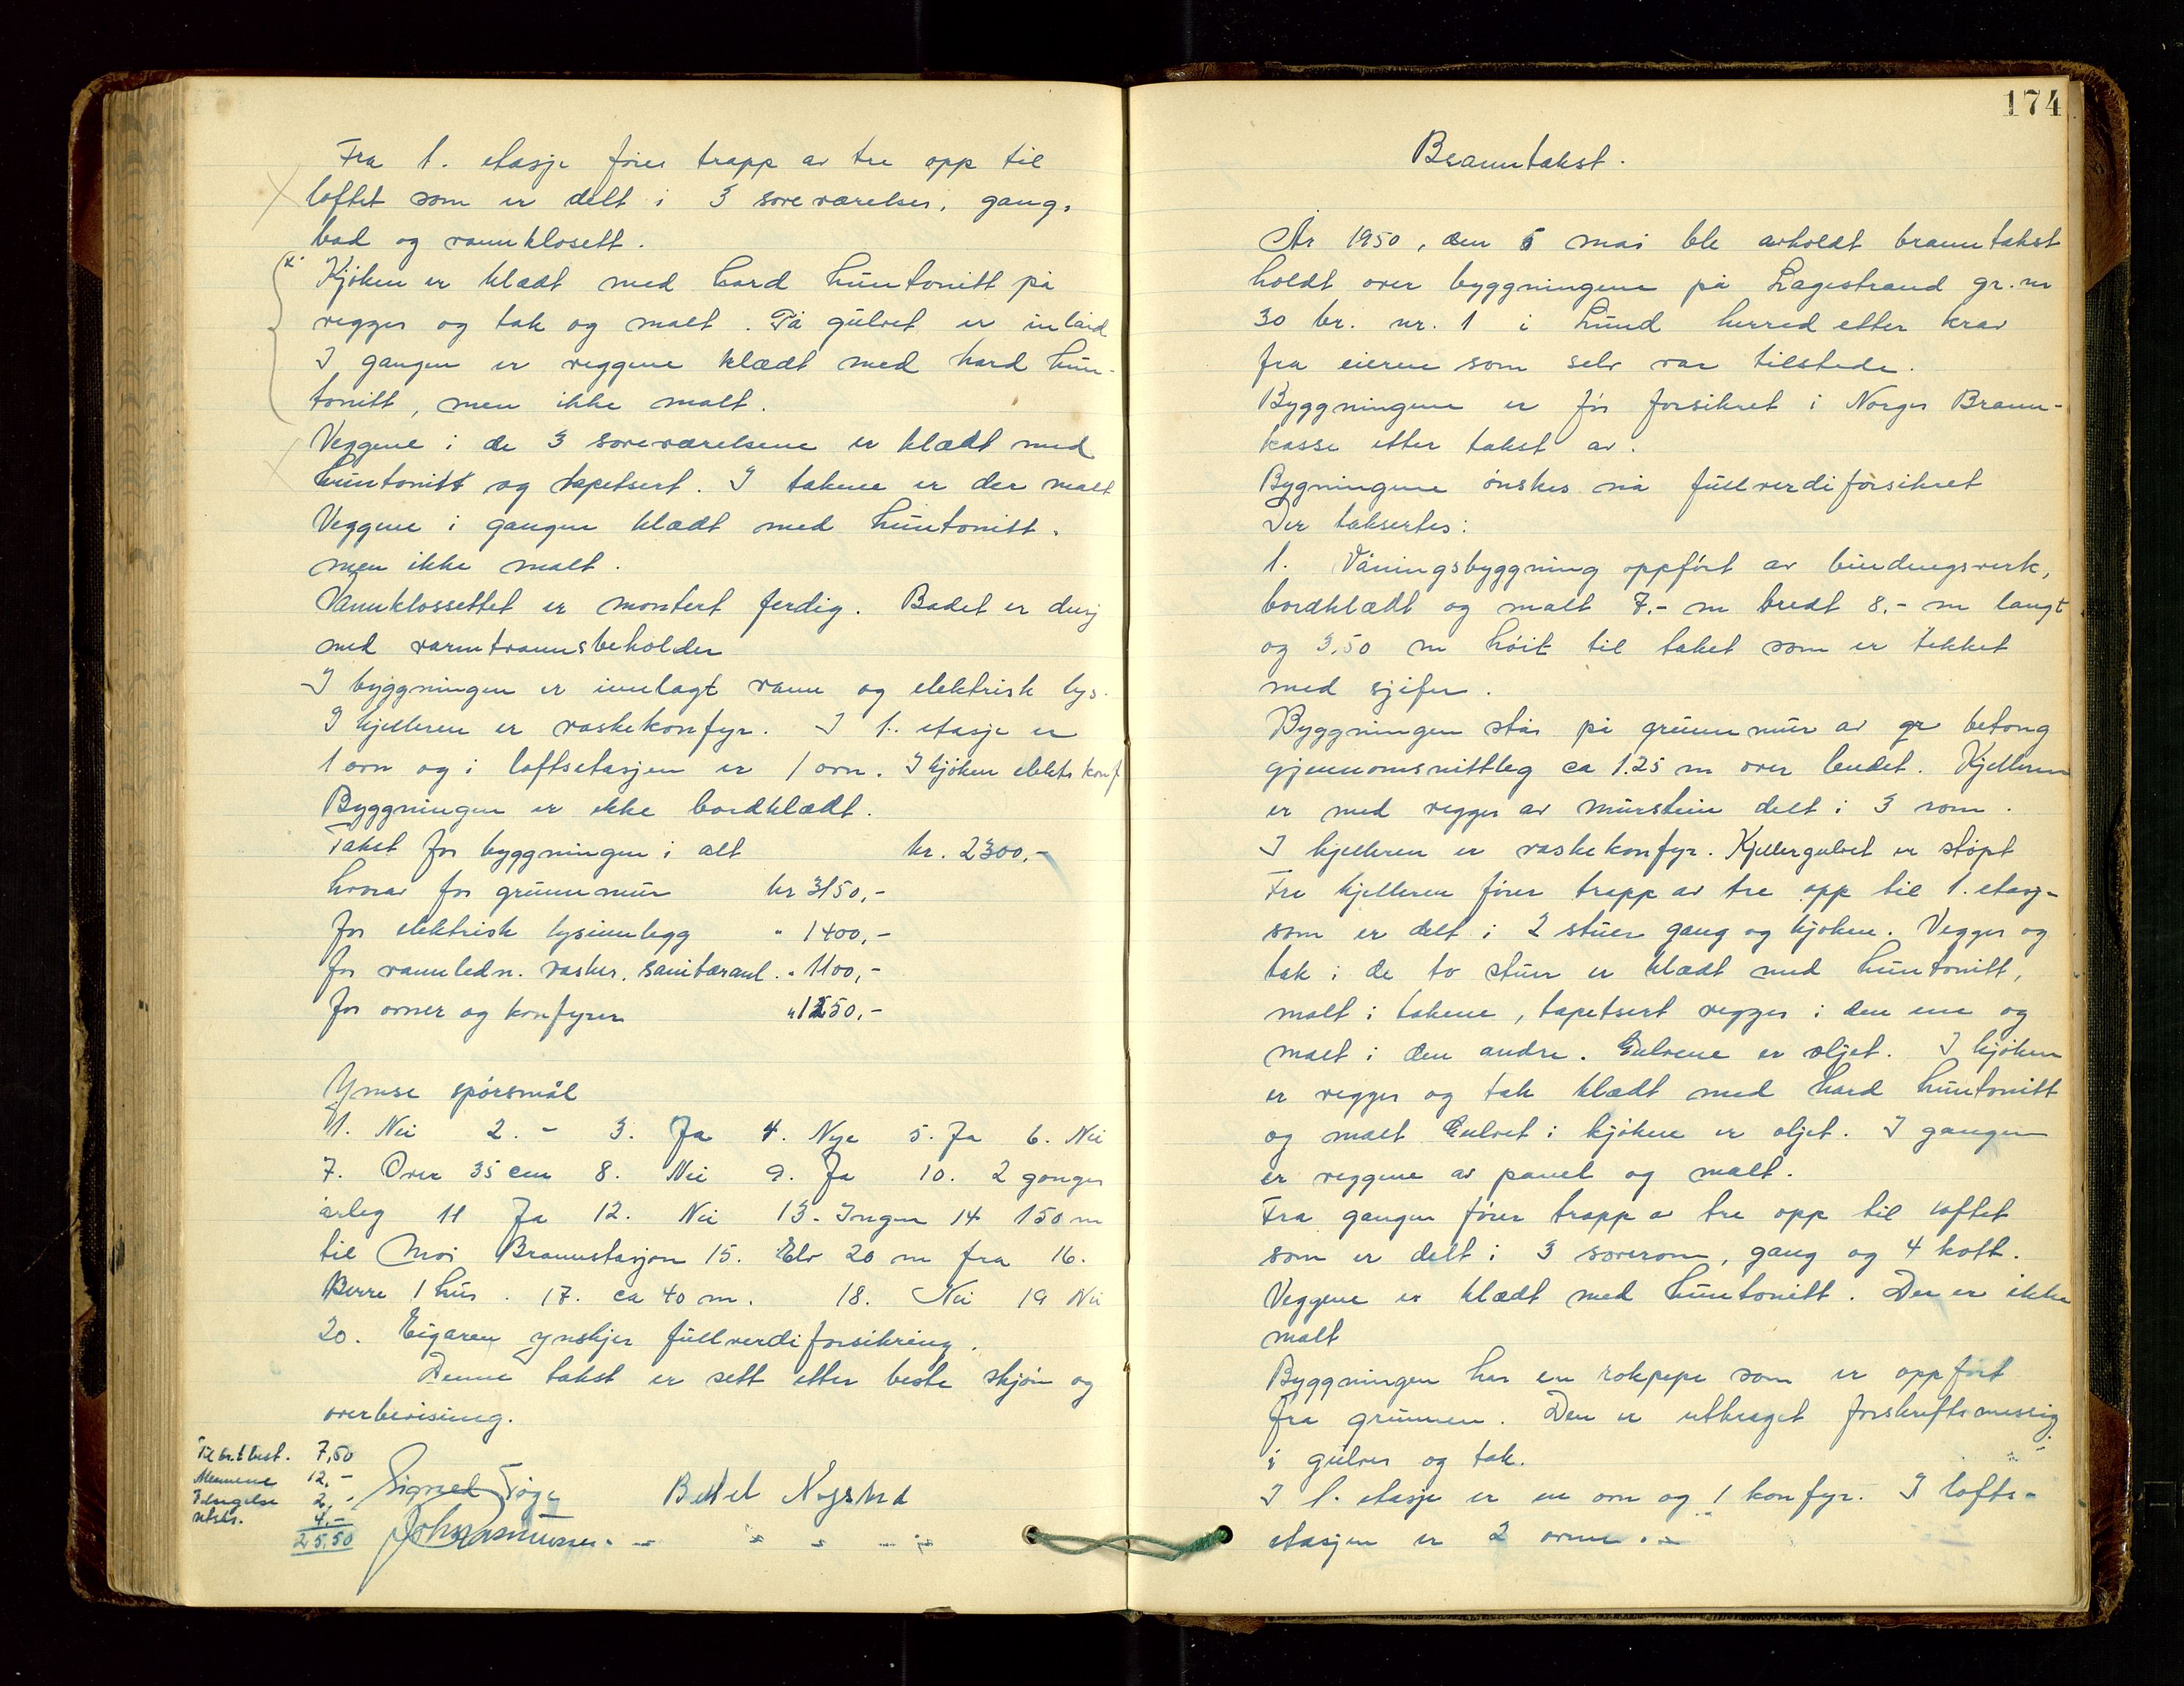 Fra 1. etasje fører trapp av tre opp til
loftet som er delt i 3 soveværelser, gang,
bad og vannklosett.
x. Kjøken er klædt med hard huntonitt på
vegger og tak og malt. På gulvet er inlaid
I gangen er veggene klædt med hard hun-
tonitt, men ikke malt.
Veggene i de 3 soveværelsene er klædt med
huntonitt og tapetsert. I takene er der malt
Veggene i gangen klædt med huntonitt,
men ikke malt.
Vannklossettet er montert ferdig. Badet er dusj
med varmtvannsbeholder
I byggningen er innlagt vann og elektrisk lys.
I kjelleren er vaskekomfyr. I 1. etasje er
1 ovn og i loftsetasjen er 1 ovn. I kjøken elektr komf
Byggningen er ikke bordklædt.
Takst for byggningen i alt kr. 2300,-
hvorav for grunnmur kr 3150,-
for elektrisk lysinnlegg " 1400,-
for vannledn. vasker, sanitæranl. " 1100,-
for ovner og komfyrer " 1250,-
Ymse spørsmål
1. Nei 2. - 3. Ja 4. Nye 5. Ja 6. Nei
7. Over 35 cm 8. Nei 9. Ja 10. 2 gonger
årleg 11 Ja 12. Nei 13. Ingen 14 150 m
til Moi Brannstasjon 15. Elv 20 m fra 16.
Berre 1 hus. 17. ca 40 m. 18. Nei 19 Nei
20. Eigaren ynskjer fullverdiforsikring.
Denne takst er sett etter beste skjøn og
overbevising.
7,50
Mennene 12,-
2,-
4,-
25,50
Sigved
John Rasmussen
174
Branntakst.
År 1950, den 5 mai ble avholdt branntakst
holdt over byggningene på Lagestrand gr. nr
30 br. nr. 1 i Lund herred etter krav
fra eieren som selv var tilstede.
Byggningene er før forsikret i Norges Brann-
kasse etter takst av.
Bygningene ønskes nå fullverdiforsikret
Der taksertes:
1. Våningsbyggning oppført av bindingsverk,
bordklædt og malt 7,- m bredt 8,- m langt
og 3,50 m høit til taket som er tekket
med sjifer.
Byggningen står på grunnmur av gr betong
gjennomsnittleg ca 1.25 m over lendet. Kjelleren
er med vegger av murstein delt i 3 rom.
I kjelleren er vaskekomfyr. Kjellergulvet er støpt
Fra kjelleren fører trapp av tre opp til 1. etasj-
som er delt i 2 stuer gang og kjøken. Vegger og
tak i de to stuer er klædt med huntonitt,
malt i takene, tapetsert vegger i den ene og
malt i den andre. Gulvene er oljet. I kjøken
er vegger og tak klædt med hard huntonitt
og malt Gulvet i kjøkene er oljet. I gangen
er veggene av panel og malt.
Fra gangen fører trapp a tre opp til loftet
som er delt i 3 soverom, gang og 4 kott.
Veggene er klædt med huntonitt. Der er ikke
malt
Byggningen har en rokpepe som er oppført
fra grunnen. Den er utkraget forskriftsmessig
i gulver og tak.
I 1. etasje er en ovn og 1 komfyr. I lofts-
etasjen er 2 ovner. -